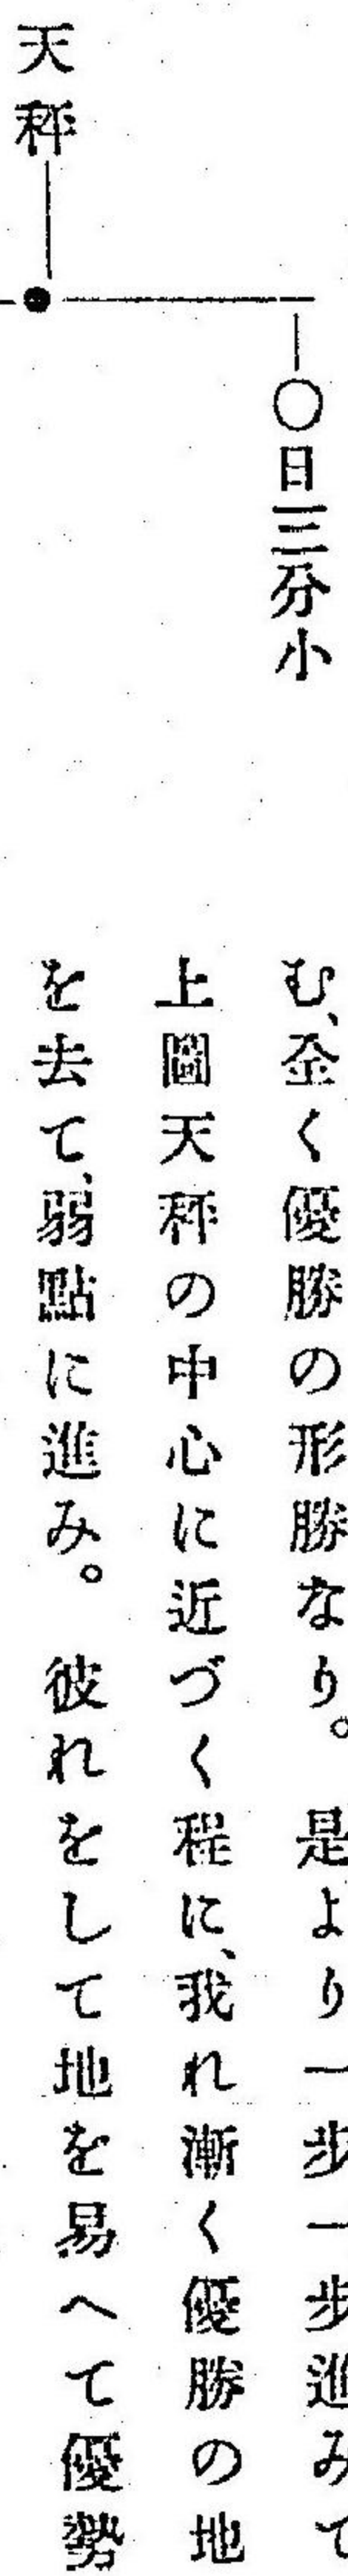 〇日三分小
天秤
む、全く優勝の形勝なり。是より一步一步進みて
上圖天秤の中心に近づく程に、我れ漸く優勝の地
を去て、弱點に進み。彼れをして地を易へて優勢